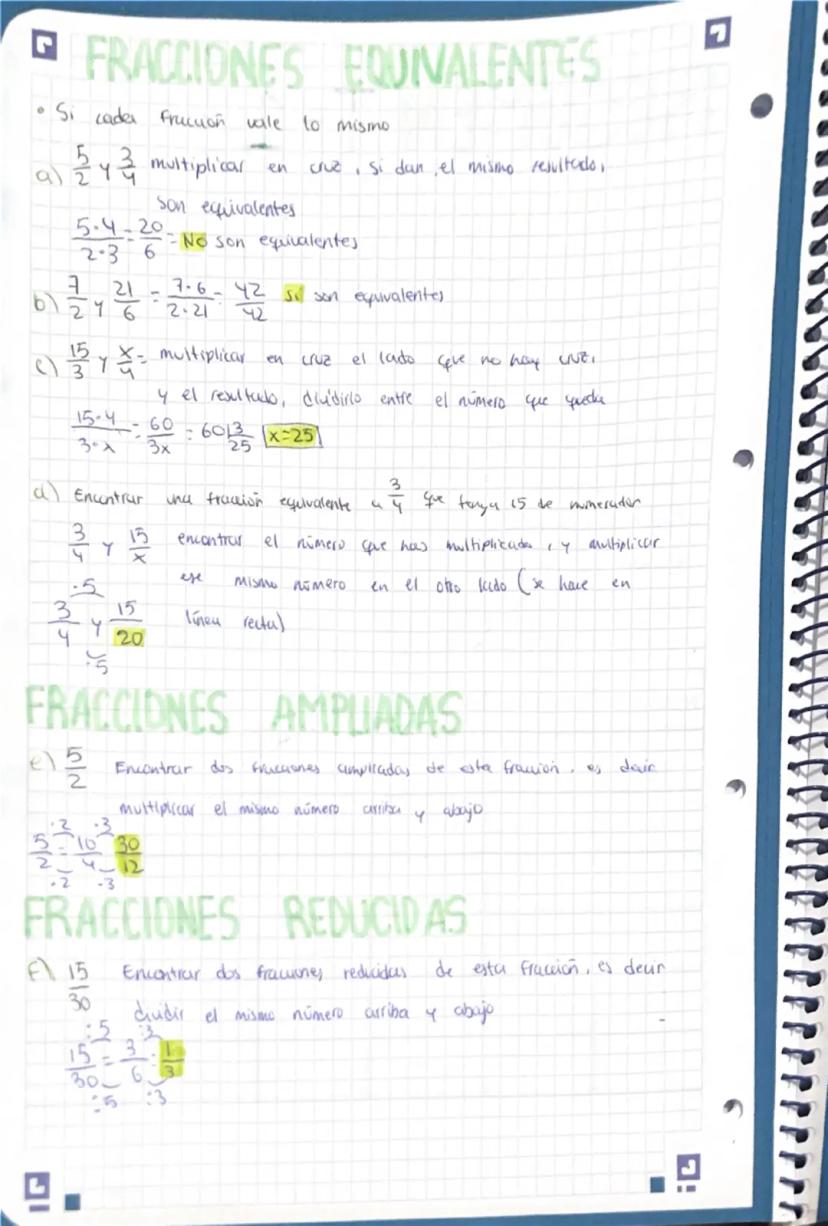 FRACCIONES EQUIVALENTES
• Si cada fracción vale lo mismo
a) 5/2 y 3/4 multiplicar en cruz, si dan el mismo resultado,
son equivalentes
5·4/2·3 = 20/6 = No son equivalentes
b) 7/2 y 21/6 = 7·6/2·21 = 42/42 Si son equivalentes
c) 15/3 y x/4 = multiplicar en cruz el lado que no hay cruz,
y el resultado, dividirlo entre el número que queda
15·4/3·x = 60/3x = 60 |3 25 x=25
d) Encontrar una fracción equivalente a 3/4 que tenga 15 de numerador
3/4 y 15/x encontrar el número que has multiplicado, y multiplicar
ese mismo número en el otro lado (se hace en
·5
3/4 y 15/20 línea recta)
·5
FRACCIONES AMPLIADAS
e) 5/2 Encontrar dos fracciones ampliadas de esta fracción, es decir
multiplicar el mismo número arriba y abajo
·2 ·3
5/2 = 10/4 30/12
·2 ·3
FRACCIONES REDUCIDAS
F) 15/30 Encontrar dos fracciones reducidas de esta fracción, es decir
dividir el mismo número arriba y abajo
:5 :3
15/30 = 3/6 = 1/3
:5 :3